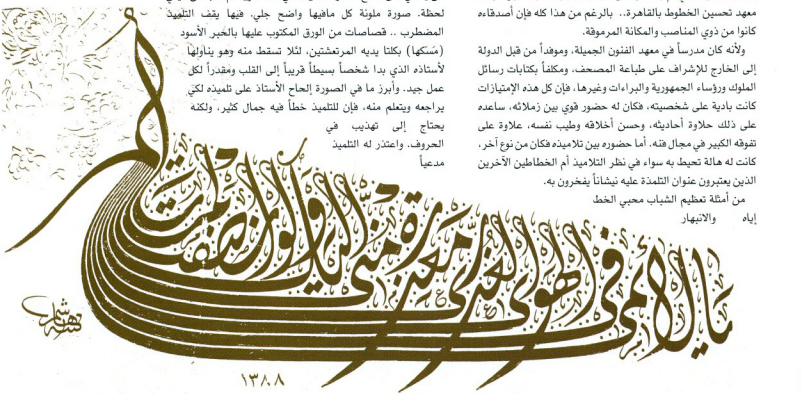 معهد تحسين الخطوط بالقاهرة.. بالرغم من هذا كله فإن أصدقاءه
كانوا من ذوي المناصب والمكانة المرموقة.
ولأنه كان مدرساً في معهد الفنون الجميلة، وموفداً من قبل الدولة
إلى الخارج للإشراف على طباعة المصحف، ومكلفاً بكتابات رسائل
الملوك ورؤساء الجمهورية والبراءات وغيرها، فإن كل هذه الإمتيازات
كانت بادية على شخصيته، فكان له حضور قوي بين زملائه، ساعده
على ذلك حلاوة أحاديثه، وحسن أخلاقه وطيب نفسه، علاوة على
تفوقه الكبير في مجال فنه. أما حضوره بين تلاميذه فكان من نوع آخر،
كانت له هالة تحيط به سواء في نظر التلاميذ أم الخطاطين الآخرين
الذين يعتبرون عنوان التلمذة عليه نيشاناً يفخرون به.
من أمثلة تعظيم الشباب محبي الخط
إياه والانبهار
لحظة. صورة ملونة كل مافيها واضح جلي. فيها يقف التلميذ
المضطرب .. قصاصات من الورق المكتوب عليها بالخبر الأسود
(مَسَكها) بكلتا يديه المرتعشتين، لئلا تسقط منه وهو يناولها
لأستاذه الذي بدا شخصاً بسيطاً قريباً إلى القلب ومقدراً لكل
عمل جيد. وأبرز ما في الصورة إلحاح الأستاذ على تلميذه لكي
يراجعه ويتعلم منه، فإن للتلميذ خطاً فيه جمال كثير، ولكنه
يحتاج إلى تهذيب في
الحروف. واعتذر له التلميذ
مدعياً
يا لائمي في الهوى العذري معذرة مني إليك ولو أنصفت لم تلم
١٣٨٨